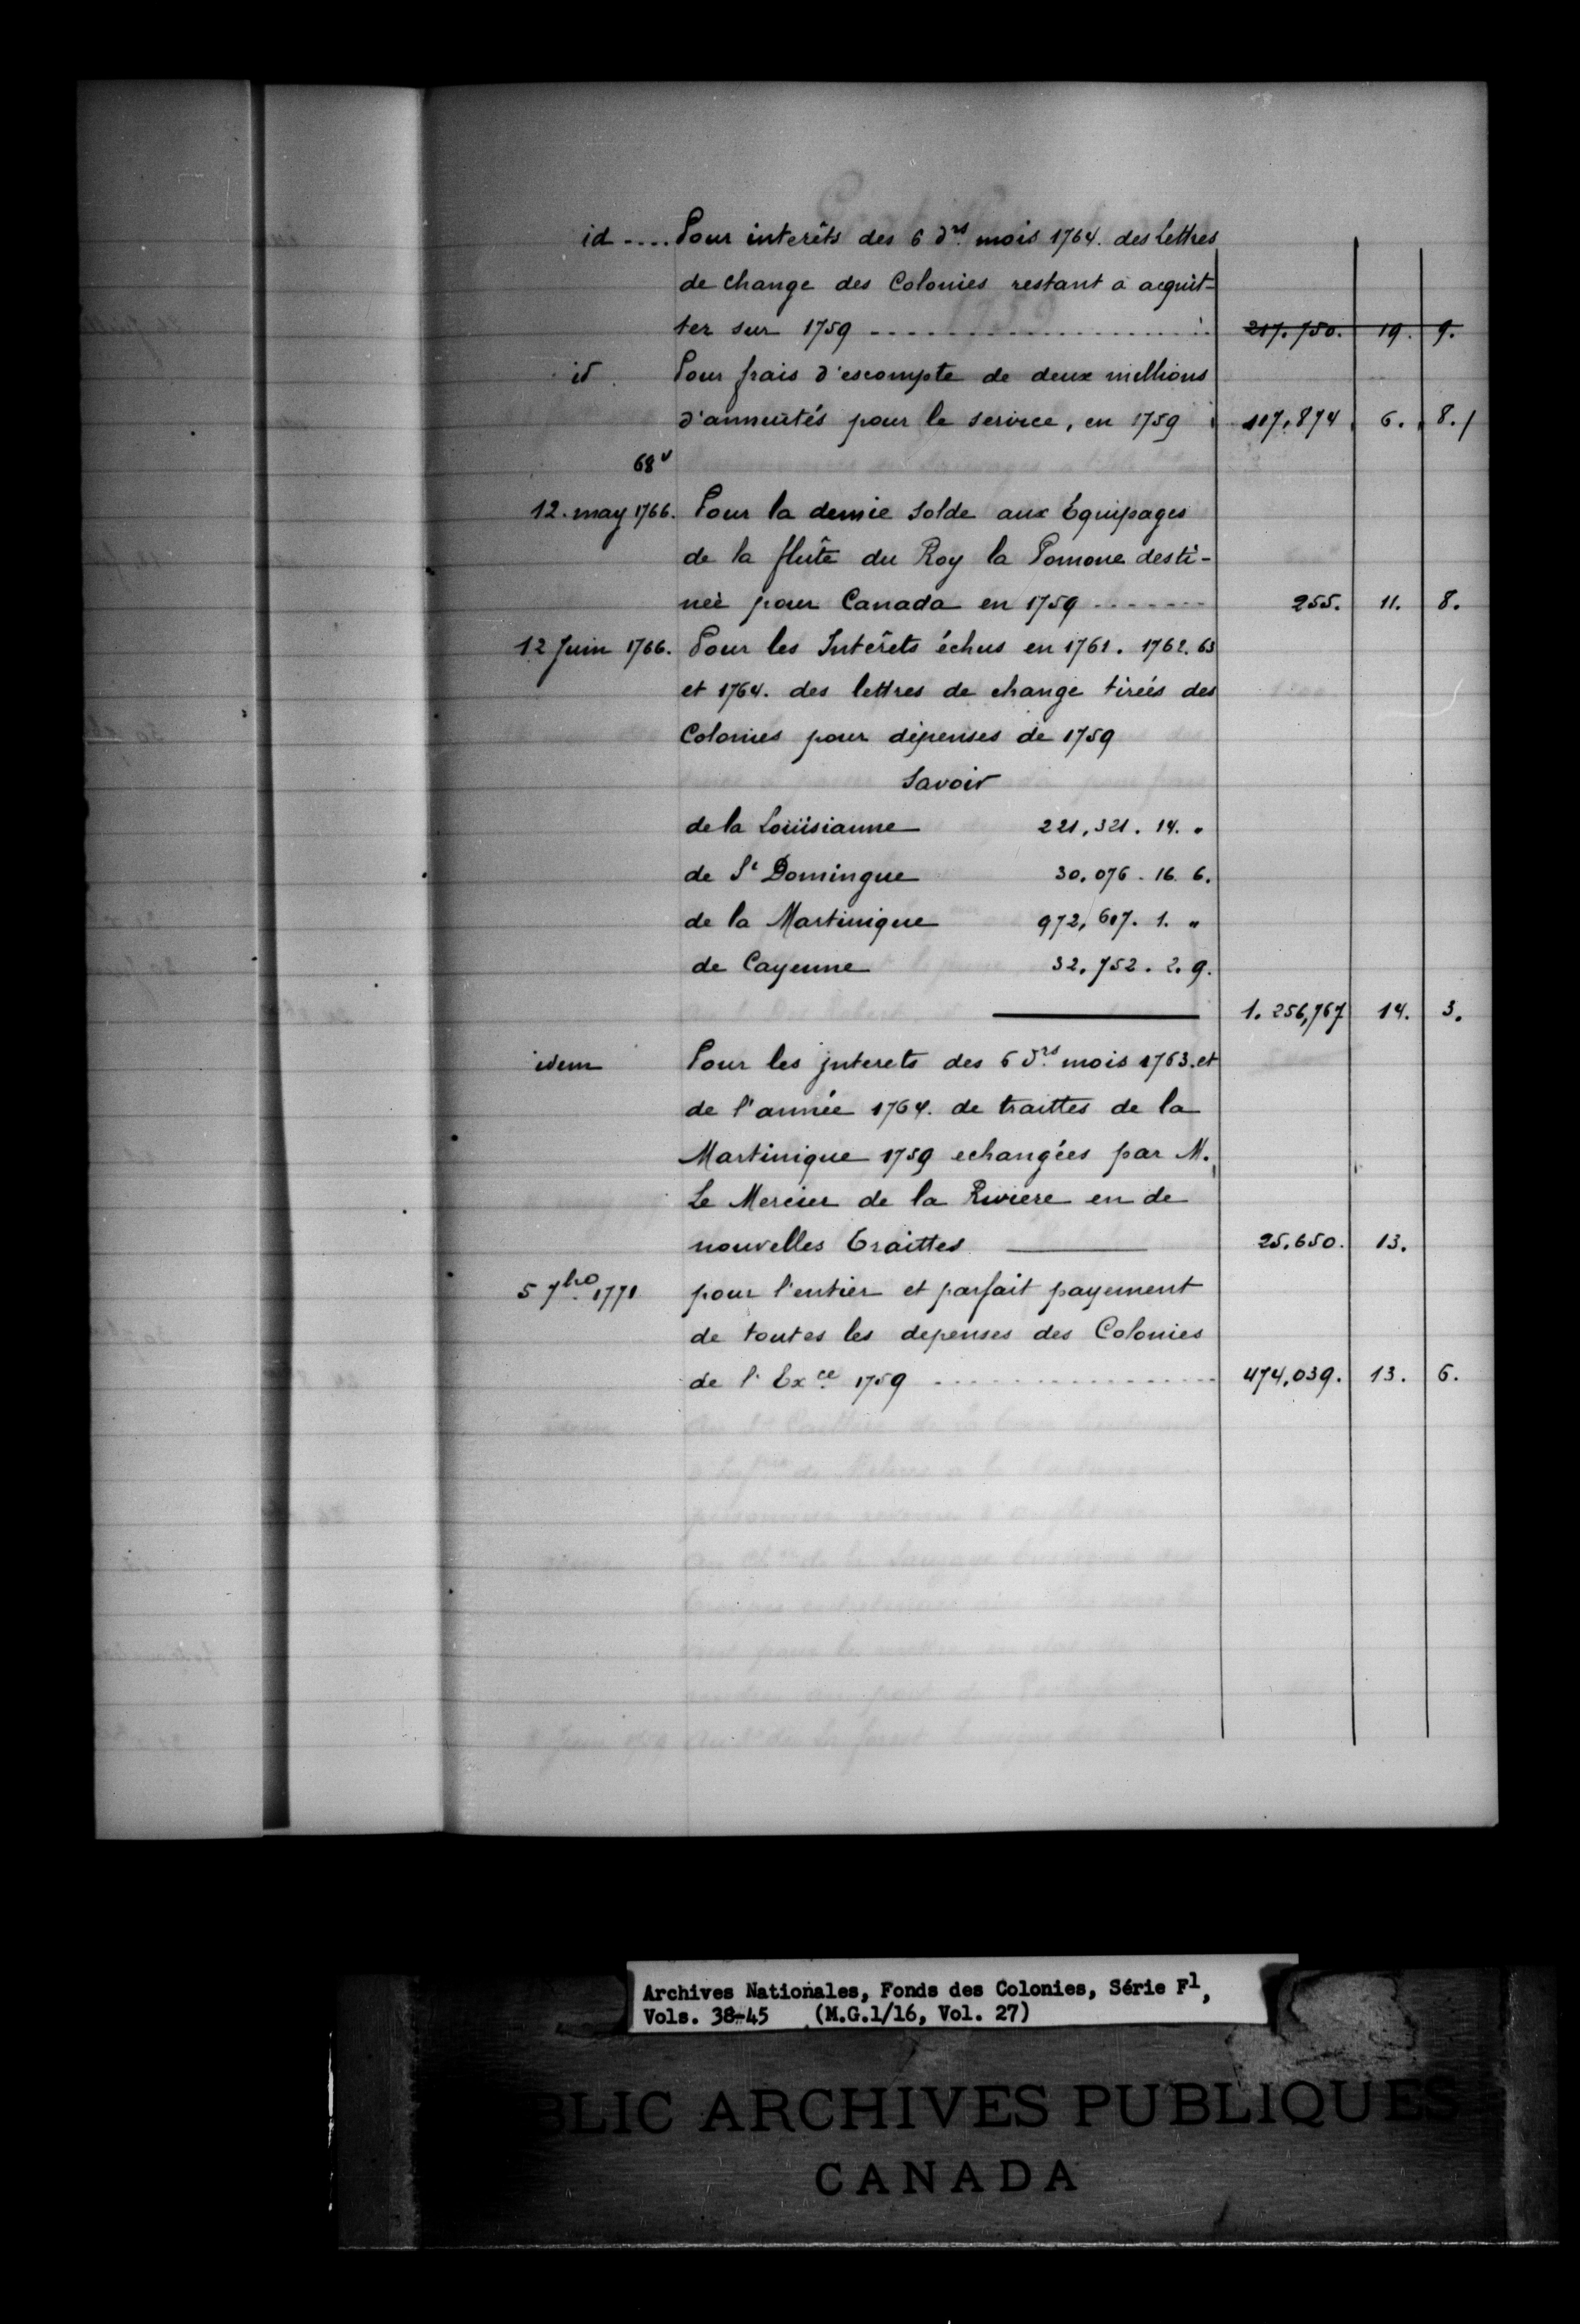 id .... Pour interêts des 6 drs mois 1764. des lettres
de change des Colonies restant à acquit-
ter sur 1759 .................... 217.750. 19. 9.
id. Pour frais d'escompte de deux millions
d'annuités pour le service, en 1759 117,874 6. 8./
68v
12. may 1766. Pour la demie solde aux Equipages
de la flûte du Roy la Pomone desti-
neè pour Canada en 1759 ....... 255. 11. 8.
12 Juin 1766. Pour les Intêrets échus en 1761. 1762. 63
et 1764. des lettres de change tireés des
Colonies pour dépenses de 1759
Savoir
de la Loüisianne 221,321. 14. "
de St Domingue 30.076. 16. 6.
de la Martinique 972,617. 1. "
de Cayenne 32.752. 2. 9.
1.256,767 14. 3.
idem Pour les jnterets des 6 drs mois 1763. et
de l'année 1764. de traittes de la
Martinique 1759 echangées par M.
Le Mercier de la Riviere en de
nouvelles Traittes 25.650. 13.
5 7bre 1771 pour l'entier et parfait payement
de toutes les depenses des Colonies
de l'Exce 1759 ................ 474,039. 13. 6.
Archives Nationales, Fonds des Colonies, Série F1,
Vols. 38-45 (M.G.1/16, Vol. 27)
BLIC ARCHIVES PUBLIQUES
CANADA